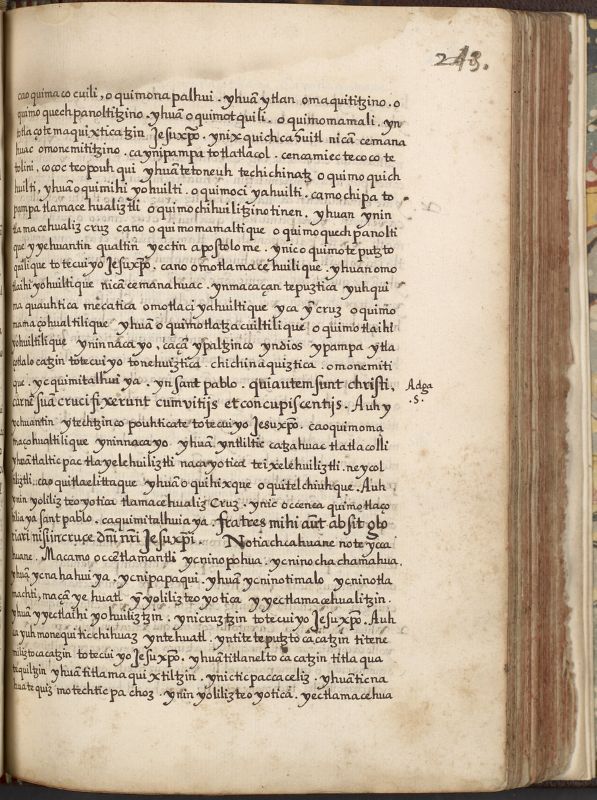 243.
cao quima co cuili, o quimona palhui. yhuā ytlan omaquititzino. o
quimo quech panoltitzino. yhuā o quimotquili. o quimomamali. yn
totlaço te maquixticatzin Jesuxp̄o. ynixquich cahuitl nicā cemana
huac omonemititzino. ca ynipampa totlatlacol. cencamiec tecoco te
tolini, cococ teopouh qui yhuā tetoneuh techichinatz o quimo quich
huilti, yhuā oquimihi yohuilti. o quimoci yahuilti. camochi pa to
pampa tlamacehualiztli o quimochihuilitzinotinen. yhuan ynin
tlamacehualiz cruz cano o quimomamaltique o quimoquech panolti
que y yehuantin qualtin yectin apostolome. ynic o quimotepuzto
quilique totecuiyo Jesuxp̄o. cano omotlamacehuilique. yhuan omo
tlaihi yohuiltique nicā cemanahuac. ynmacaçan tepuztica yuhqui
ma quauhtica mecatica omotlaci yahuiltique yca yn̄ cruz oquimo
namaçohualtilique yhuā o quimotlatzacuiltilique oquimotlaihi
yohuiltilique yninnacayo, caçā ypaltzinco yndios ypampa ytla
çotlalocatzin totecuiyo tonehuiztica chichinaquiztica. omonemiti
que. yc quimitalhui ya. yn sant pablo. qui autem sunt christi,
carnē suā crucifixerunt cum vitijs et concupiscentijs. Auh y
Adga
.5.
yehuantin ytechtzinco pouhticate totecuiyo Jesuxp̄o. caoquimoma
maçohualtilique yninnacayo. yhuā yntliltic catzahuac tlatlacolli
yhuā tlalticpac tlayelehuiliztli nacayotica teixelehuiliztli. neycol
tiliztli. cao quitlaelittaque yhuā o quihixque o quitelchiuhque. Auh
ynin yoliliz teoyotica tlamacehualiz Cruz. ynic occenca quimotlaço
tilia ya sant pablo. caquimitalhuia ya. fratres mihi aūt absit glo
riari nisi in cruce dn̄i nr̄i Jesuxp̄i. Notiachcahuane note ycca
huane. Macamo occētlamantli ycninopohua. ycninochachamahua.
yhuā ycnahahuiya. ycnipapaqui. yhuā ycninotimalo ycninotla
machti, maçā ye huatl y yoliliz teoyotica y yectlamacehualitzin.
yhuā y yectlaihi yohuiliztzin. ynicruztzin totecuiyo Jesuxp̄o. Auh
ca yuh monequi ticchihuaz yntehuatl. yntitetepuztocacatzin titene
miliztocacatzin totecuiyo Jesuxp̄o. yhuā titlaneltocacatzin titlaqua
tequiltzin yhuā titlamaquixtiltzin. ynictic paccaceliz. yhuā ticna
huatequiz motechtic pachoz. ynin yoliliz teoyotica. yectlamacehua